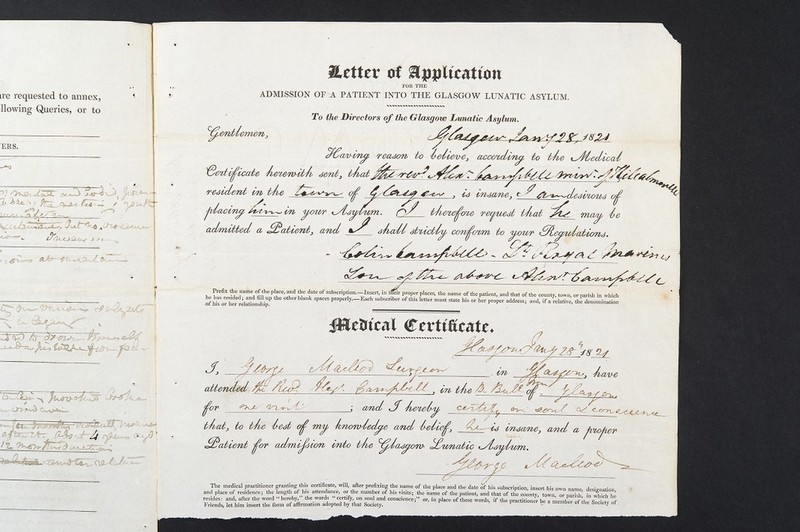 are requested to annex,
llowing Queries, or to
ERS.
4 years ago
12 months
Letter of Application
FOR THE
ADMISSION OF A PATIENT INTO THE GLASGOW LUNATIC ASYLUM.
To the Directors of the Glasgow Lunatic Asylum.
Gentlemen,
Glasgow Jany 28, 1821
Having reason to believe, according to the Medical
Certificate herewith sent, that the revd. Alexr. Campbell minr. of Kilcalmonell
resident in the town of Glasgow, is insane, I am desirous of
placing him in your Asylum. I therefore request that he may be
admitted a Patient, and I shall strictly conform to your Regulations.
Colin Campbell - Lt. Royal Marines
Son of the above Alexr. Campbell
Prefix the name of the place, and the date of subscription.—Insert, in their proper places, the name of the patient, and that of the county, town, or parish in which
he has resided; and fill up the other blank spaces properly.—Each subscriber of this letter must state his or her proper address; and, if a relative, the denomination
of his or her relationship.
Medical Certificate.
Glasgow Jany 28th 1821
I, George Macleod Surgeon in Glasgow, have
attended the Revd. Alexr. Campbell, in the B. Bull Inn of Glasgow
for one visit ; and I hereby certify on soul & conscience
that, to the best of my knowledge and belief, he is insane, and a proper
Patient for admission into the Glasgow Lunatic Asylum.
George Macleod
The medical practitioner granting this certificate, will, after prefixing the name of the place and the date of his subscription, insert his own name, designation,
and place of residence; the length of his attendance, or the number of his visits; the name of the patient, and that of the county, town, or parish, in which he
resides: and, after the word "hereby," the words "certify, on soul and conscience;" or, in place of these words, if the practitioner be a member of the Society of
Friends, let him insert the form of affirmation adopted by that Society.